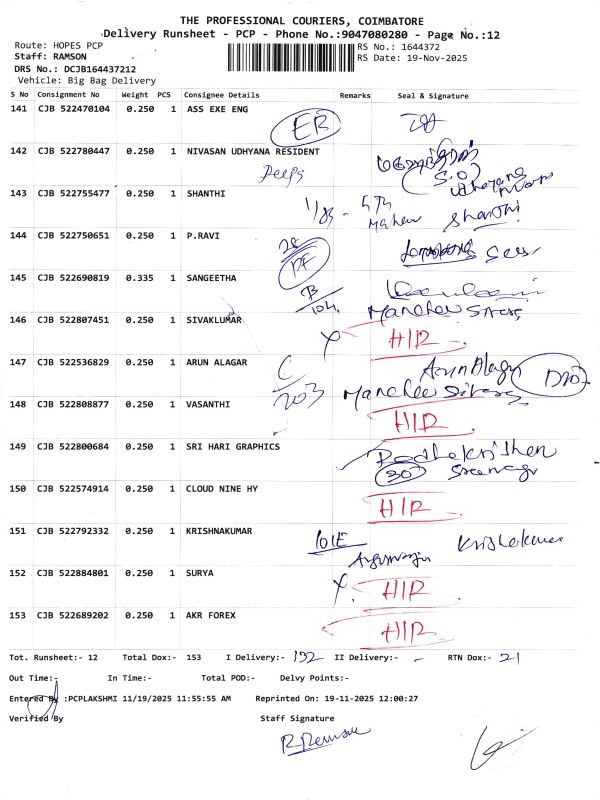 THE PROFESSIONAL COURIERS, COIMBATORE
Delivery Runsheet - PCP - Phone No.:9047080280 - Page No.:12
Route: HOPES PCP
RS No.: 1644372
Staff: RAMSON
RS Date: 19-Nov-2025
DRS No.: DCJB164437212
Vehicle: Big Bag Delivery
S No Consignment No Weight PCS Consignee Details Remarks Seal & Signature
141 CJB 522470104 0.250 1 ASS EXE ENG
EB
142 CJB 522780447 0.250 1 NIVASAN UDHYANA RESIDENT
S.O
143 CJB 522755477 0.250 1 SHANTHI
Shanthi
144 CJB 522750651 0.250 1 P.RAVI
145 CJB 522690819 0.335 1 SANGEETHA
B/104
146 CJB 522807451 0.250 1 SIVAKUMAR
HIR
147 CJB 522536829 0.250 1 ARUN ALAGAR
C/203
Arun Alagar
148 CJB 522808877 0.250 1 VASANTHI
HIR
149 CJB 522800684 0.250 1 SRI HARI GRAPHICS
Radhekrishen
307
150 CJB 522574914 0.250 1 CLOUD NINE HY
HIR
151 CJB 522792332 0.250 1 KRISHNAKUMAR
101E
152 CJB 522884801 0.250 1 SURYA
X HIR
153 CJB 522689202 0.250 1 AKR FOREX
HIR
Tot. Runsheet:- 12 Total Dox:- 153 I Delivery:- 132 II Delivery:- - RTN Dox:- 21
Out Time:- In Time:- Total POD:- Delvy Points:-
Entered By :PCPLAKSHMI 11/19/2025 11:55:55 AM Reprinted On: 19-11-2025 12:00:27
Verified By Staff Signature